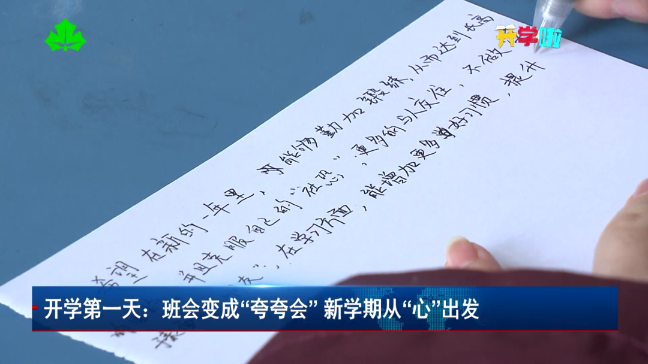 开学啦
希望在新的一年里，能够勤加锻炼，从而达到长高
并且克服自己的“社恐”，更多的与人交往，不做
”，在学习方面，能增加更多好习惯，提升
开学第一天：班会变成“夸夸会” 新学期从“心”出发